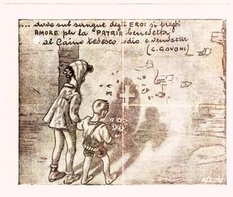 ... dove sul sangue degli EROI si preghi
AMORE per la PATRIA benedetta
al Caino tedesco odio e vendetta
(C. GOVONI)